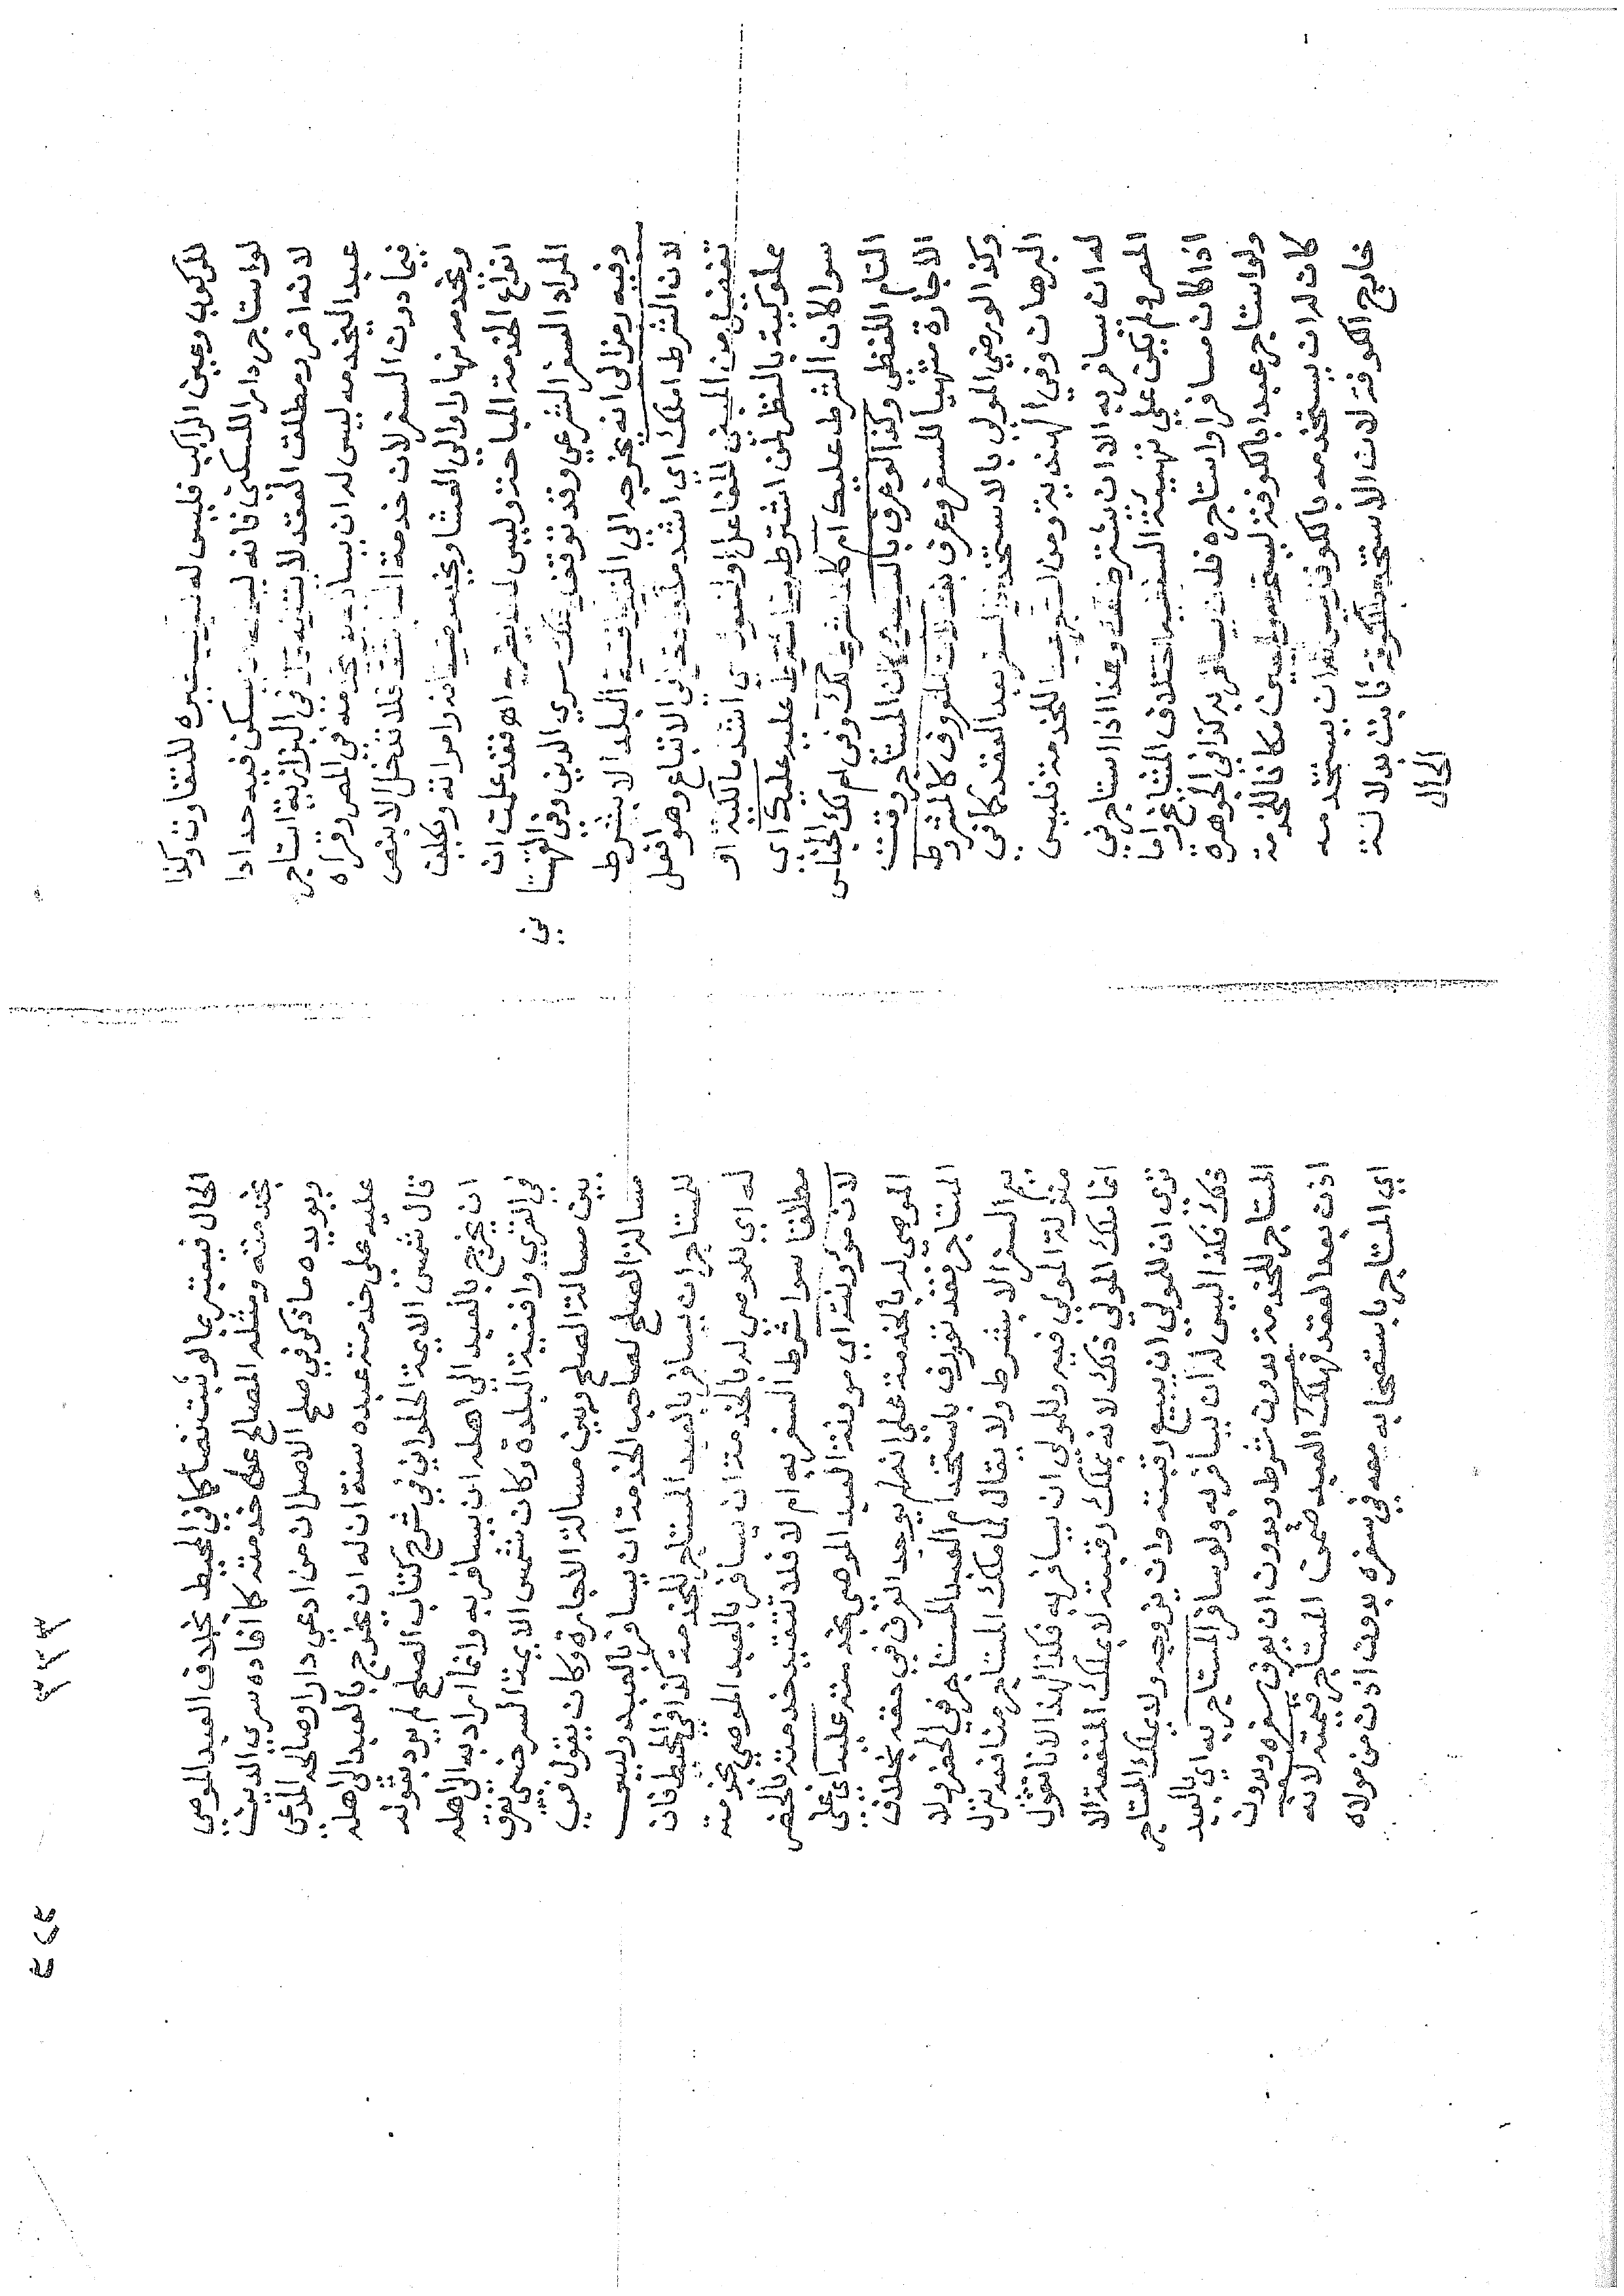 للركوب وعين الراكب فليس له غيره للتفاوت وكذا
لو استاجر دارا للسكنى فانه ليس له ان يسكن فيه حدادا
لانه اضر ومطلق العقد لا يتناوله قال في البزازية استاجر
عبدا ليخدمه ليس له ان يسافر به ويخدمه في المصر وقراه
فيما دون السفر لان خدمة السفر اشق فلا تدخل الا بنص
ويخدمه نهارا والى العشا ويخدم ضيفانه وامراته ويكلف
انواع الخدمة المباحة وليس له ضربه اهـ فقد علمت ان
المراد السفر الشرعي وقد توقف في ذلك سري الدين وفي القهستاني
وفيه رمز الى انه يخرجه الى القرى وافنية البلد الا بشرط
لان الشرط املك اي اشد ملكا في الاتباع وهو افعل
تفضيل من المبني للفاعل او المفعول اي اشد مالكية او
مملوكية بالنظر لمن اشترط وما شرط عليه عليك اي
سوا كان الشرط عليك ام كان الشرط لك وفي ام لك الجناس
التام اللفظي وكذا لو عرف بالسفر بان كان المستاجر وقت
الاجارة متهيا للسفر وعرف بذلك لان المعروف كالمشروط
وكذا لو رضي المولى بالاستخدام في السفر بعد العقد كما في
البرهان وفي الهنديه ومن استاجر عبدا للخدمة فليس
له ان يسافر به الا ان يشترط ذلك وهذا اذا استاجر في
المصر ولم يكن على تهيئة السفر اختلاف المشايخ واما
اذا كان مسافرا واستاجره فله ان يسافر به كذا في الجوهرة
ولو استاجر عبدا بالكوفة ليستخدمه ولم يعين مكانا للخدمة
كان له ان يستخدمه بالكوفة وليس له ان يستخدمه
خارج الكوفة لان الاستخدام بالكوفة ثابت بدلالة
الحال
الحال فيعتبر بما لو ثبت نصا كما في المحيط بخلاف العبد الموصى
بخدمته ومثله المصالح على خدمته كما افاده سري الدين
ويويده ما ذكر في صلح الاصل ان من ادعى دارا وصالحه المدعى
عليه على خدمة عبده سنة ان له ان يخرج بالعبد الى اهله
قال شمس الايمة الحلواني في شرح كتاب الصلح لم يرد بقوله
ان يخرج بالعبد الى اهله ان يسافر به وانما اراد به الى اهله
في القرى وافنية البلدة وكان شمس الايمة السرخسي يفرق
بين مسالة الصلح وبين مسالة الاجارة وكان يقول في
مسالة الصلح لصاحب الخدمة ان يسافر بالعبد وليس
للمستاجر ان يسافر بالعبد المستاجر للخدمة كذا في المحيط فان
له اي للموصى له بالخدمة ان يسافر بالعبد الموصى بخدمته
مطلقا سوا شرط السفر به ام لا فلا تتقيد خدمته بالحضر
لان مونته اي مونة العبد الموصى بخدمته عليه اي على
الموصى له بالخدمة على انه لم يوجد العرف في حقه بخلاف
المستاجر فقد تعورف باستخدام العبد المستاجر في الحضر ولا
يعم السفر الا بشرط ولا يقال لما ملك المستاجر منافعه نزل
منزلة المولى فيه وللمولى ان يسافر به فكذا لهذا لانا نقول
انما ملك المولى ذلك لانه يملك رقبته لا يملك المنفعة الا
ترى ان للمولى ان يبيع رقبته وان يزوجه ولا يملك المستاجر
ذلك فكذا ليس له ان يسافر به ولو سافر المستاجر به اي بالعبد
المستاجر للخدمة بدون شرط وبدون ان يعرف سفره وبدون
اذن بعد العقد فهلك العبد ضمن المستاجر قيمته لانه
اي المستاجر باستصحابه معه في سفره بدون اذن من مولاه